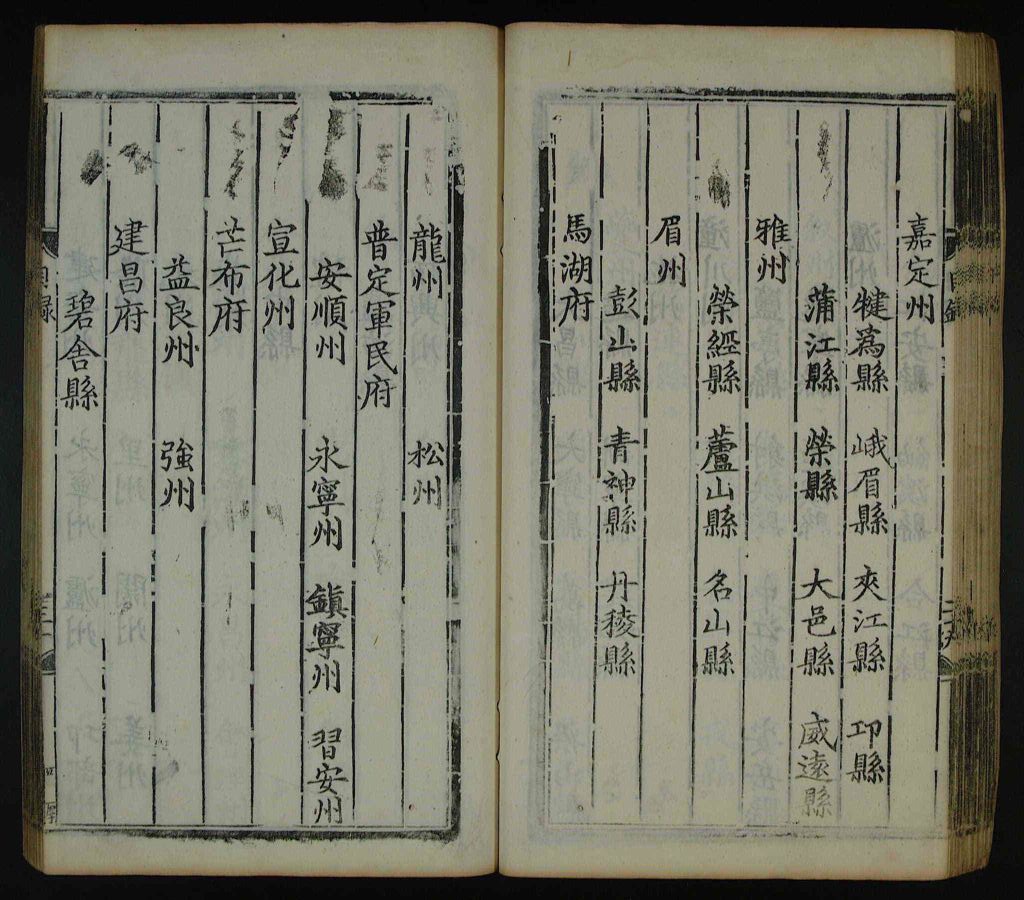 嘉定州
犍爲縣 峨眉縣 夾江縣 邛縣
蒲江縣 榮縣 大邑縣 威遠縣
雅州
榮經縣 蘆山縣 名山縣
眉州
彭山縣 青神縣 丹稜縣
馬湖府
龍州 松州
普定軍民府
安順州 永寧州 鎮寧州 習安州
宣化州
芒布府
益良州 強州
建昌府
碧舍縣
目錄